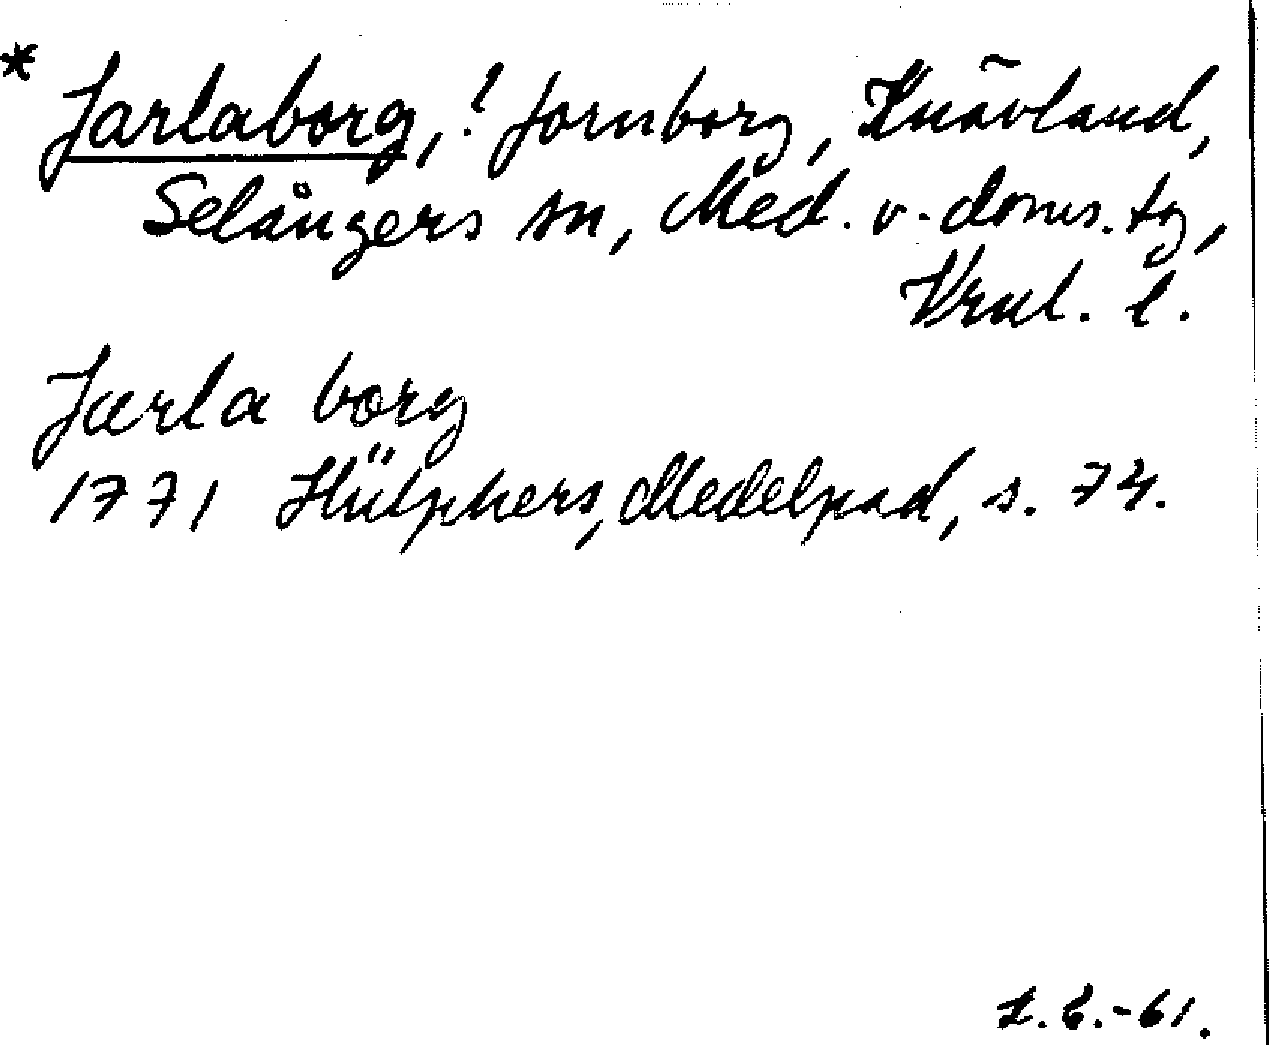 * Jarlaborg, ? fornborg, Knävland,
Selångers sn, Med. v. doms. tg,
Vrnl. l.
Jarla borg
1771 Hülphers, Medelpad, s. 74.
-61.